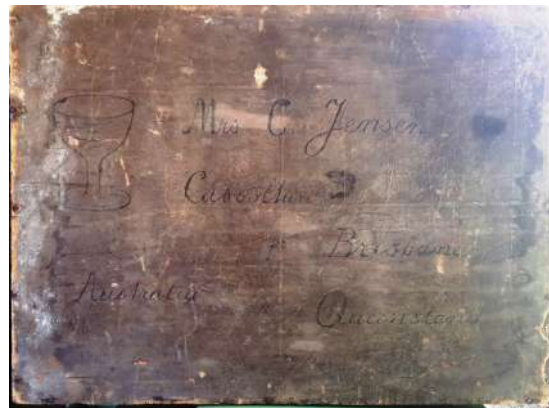 Mrs C. Jensen
Caboolture
Pr Brisbane
Australia Queensland